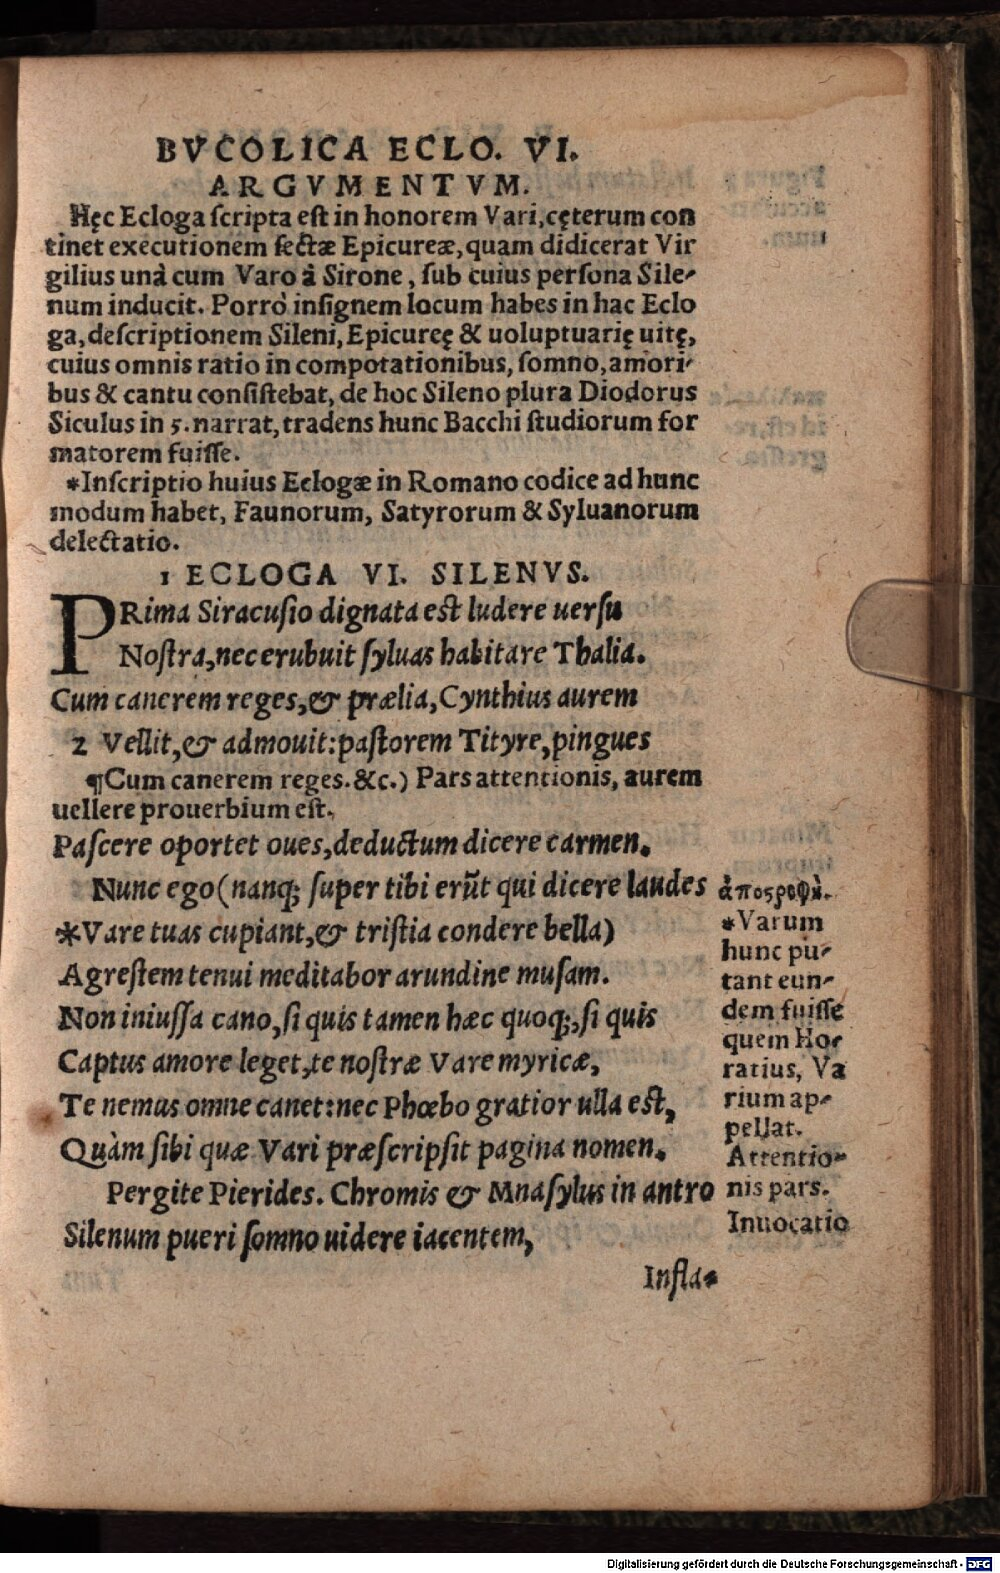 BVCOLICA ECLO. VI.
ARGVMENTVM.
Hęc Ecloga ſcripta eſt in honorem Vari, cęterum con
tinet executionem ſectæ Epicureæ, quam didicerat Vir
gilius unà cum Varo à Sirone, ſub cuius perſona Sile-
num inducit. Porrò inſignem locum habes in hac Eclo
ga, deſcriptionem Sileni, Epicureę & uoluptuarię uitę,
cuius omnis ratio in compotationibus, ſomno, amori-
bus & cantu conſiſtebat, de hoc Sileno plura Diodorus
Siculus in 5. narrat, tradens hunc Bacchi ſtudiorum for
matorem fuiſſe.
*Inſcriptio huius Eclogæ in Romano codice ad hunc
modum habet, Faunorum, Satyrorum & Syluanorum
delectatio.
1 ECLOGA VI. SILENVS.
PRima Siracuſio dignata est ludere uerſu
Noſtra, nec erubuit ſyluas habitare Thalia.
Cum canerem reges, & prælia, Cynthius aurem
2 Vellit, & admouit: paſtorem Tityre, pingues
¶Cum canerem reges. &c.) Pars attentionis, aurem
uellere prouerbium eſt.
Paſcere oportet oues, deductum dicere carmen.
Nunc ego (nanq; ſuper tibi erũt qui dicere laudes
*Vare tuas cupiant, & triſtia condere bella)
Agreſtem tenui meditabor arundine muſam.
Non iniuſſa cano, ſi quis tamen hæc quoq;, ſi quis
Captus amore leget, te noſtræ Vare myricæ,
Te nemus omne canet: nec Phœbo gratior ulla est,
Quàm ſibi quæ Vari præſcripſit pagina nomen.
Pergite Pierides. Chromis & Mnaſylus in antro
Silenum pueri ſomno uidere iacentem,
Infla-
ἀποςροφὴ.
*Varum
hunc pu-
tant eun-
dem fuiſſe
quem Ho-
ratius, Va
rium ap-
pellat.
Attentio-
nis pars.
Inuocatio
Digitalisierung gefördert durch die Deutsche Forschungsgemeinschaft - DFG